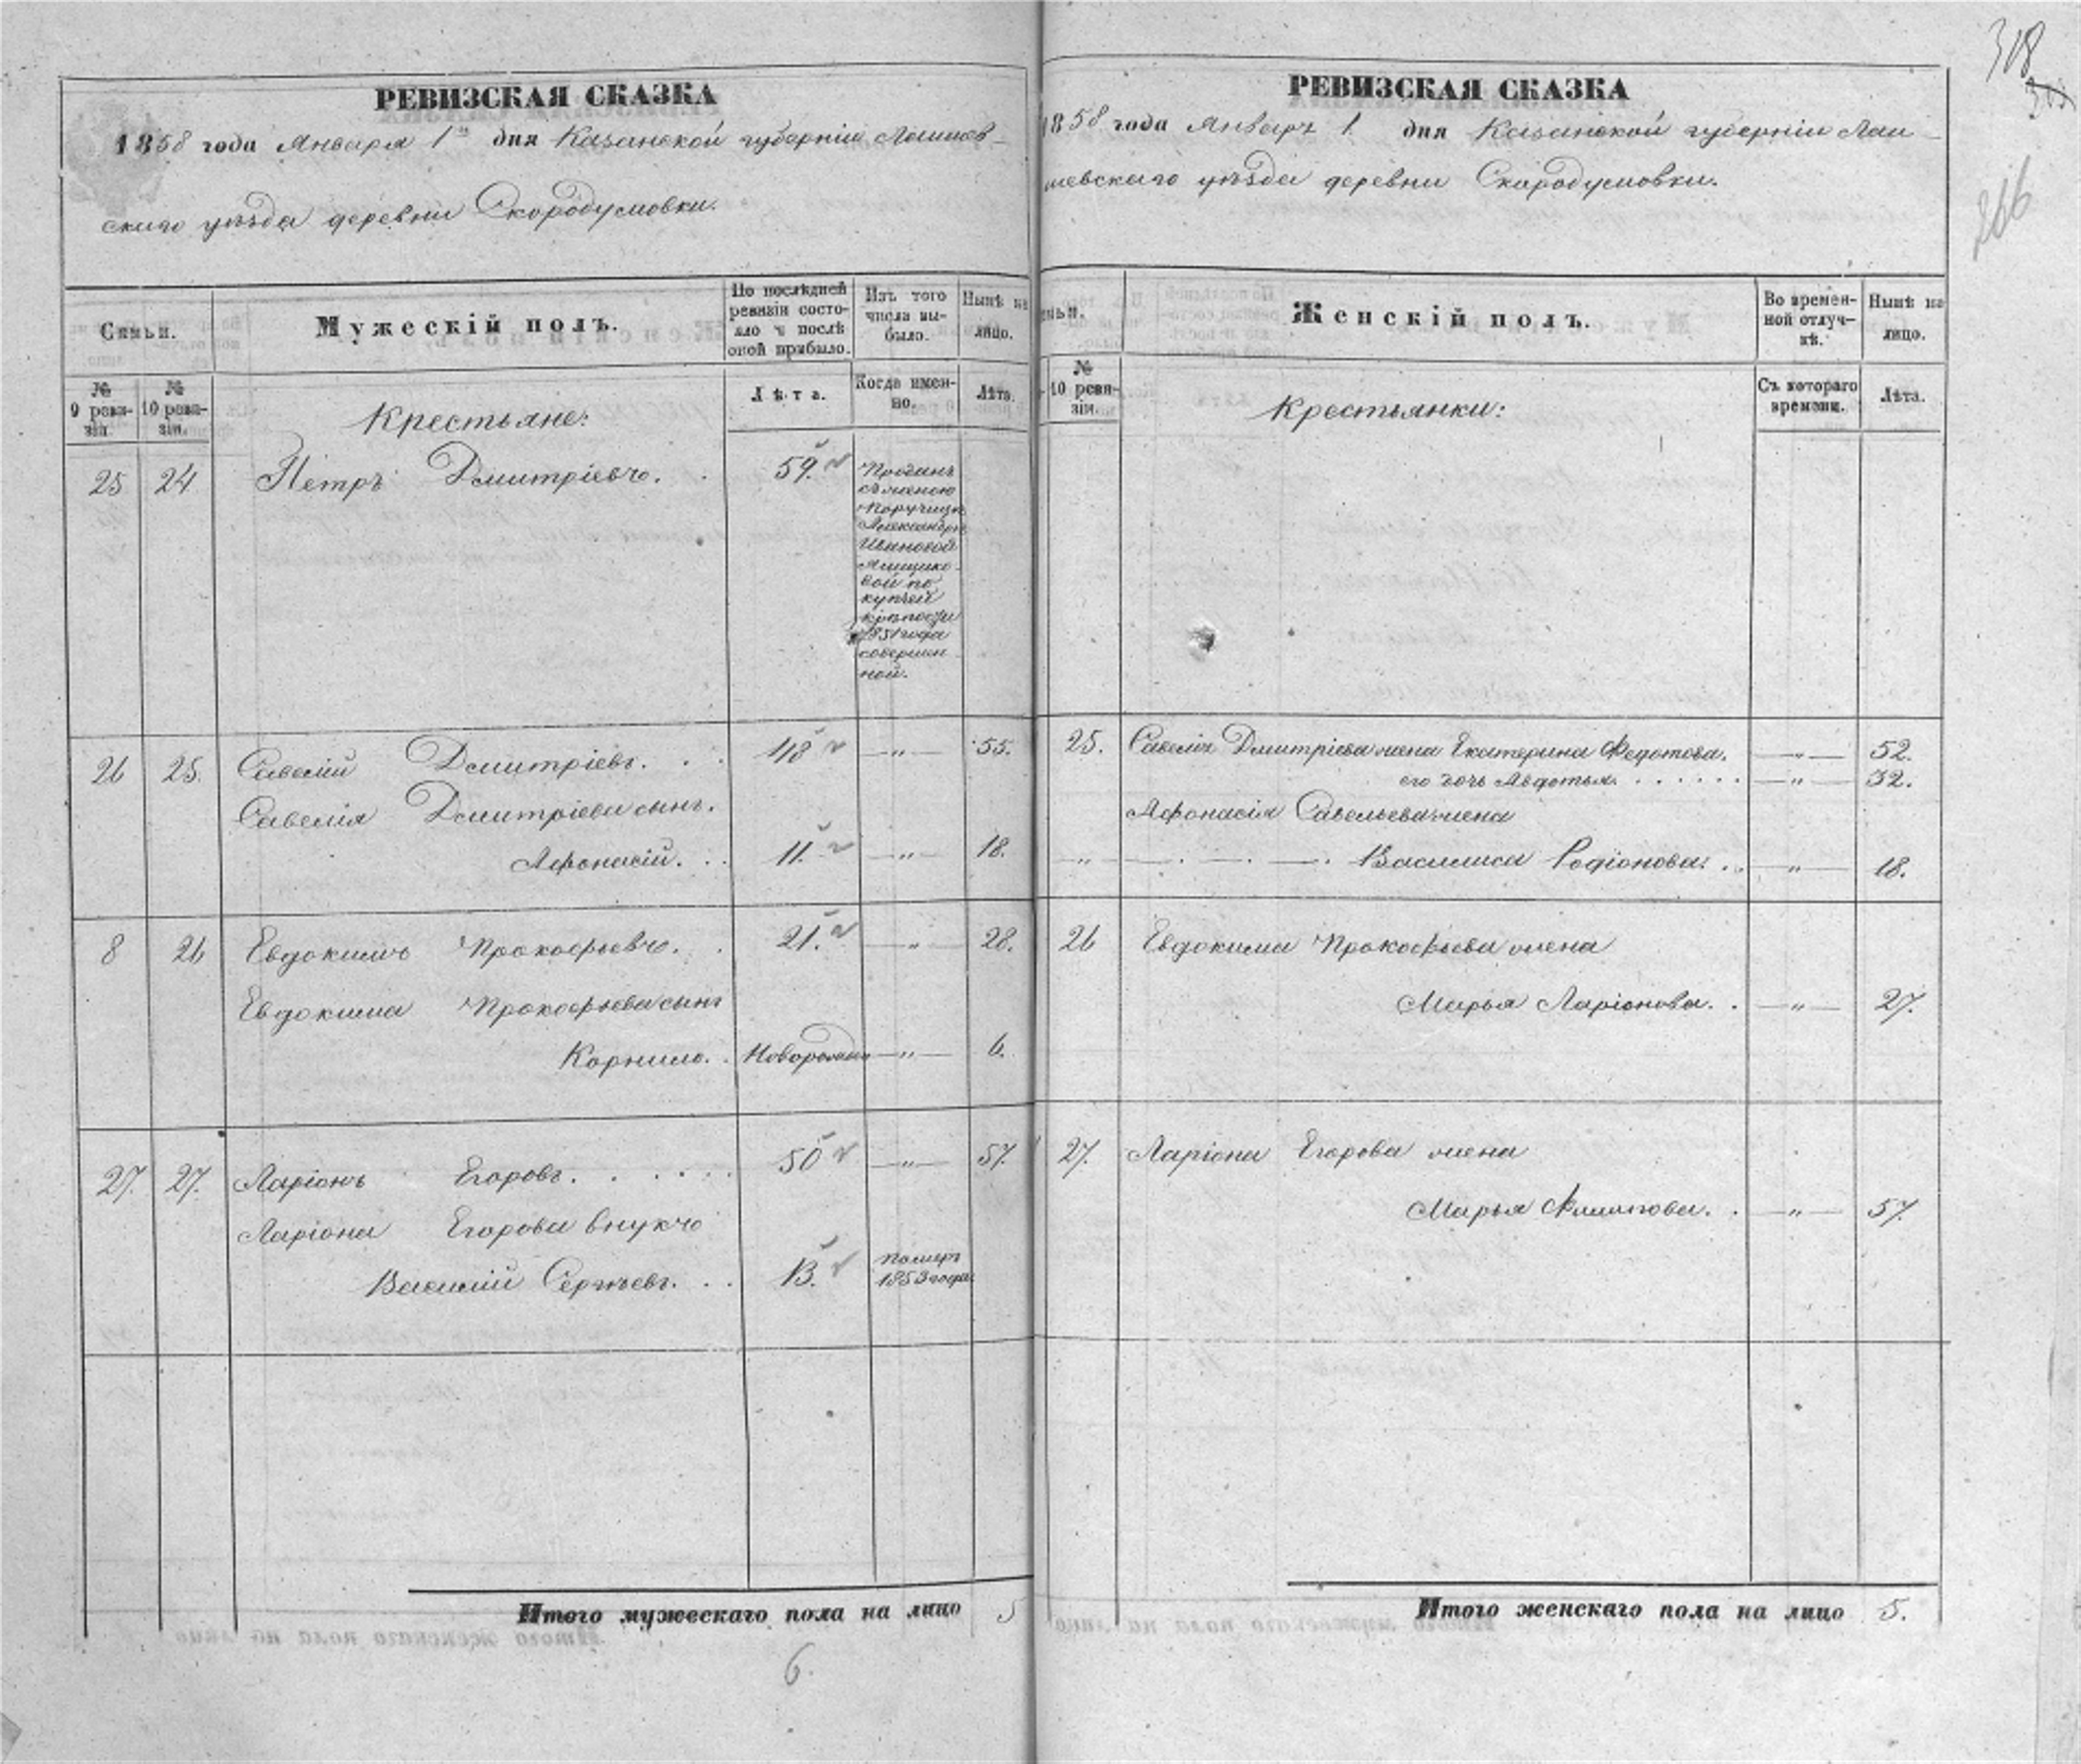 РЕВИЗСКАЯ СКАЗКА
1858 года Января 1го дня Казанской губерніи Лаишев-
скаго уѣзда деревни Скородумовки.
Семьи.
Мужескій полъ.
По послѣдней ревизіи состо-
яло и послѣ оной прибыло.
Изъ того числа вы-
было.
Нынѣ на лицо.
№ 9 реви-
зіи.
№ 10 реви-
зіи.
Крестьяне:
Лѣта.
Когда имен-
но.
Лѣта.
25 24 Петръ Дмитріевъ. 59.
Проданъ
съ женою
Поручицѣ
Александрѣ
Ивановой
по
купчей
крѣпости
1851 года
совершен
ной.
26 25. Савелій Дмитріевъ. 48 — " — 55.
Савелія Дмитріева сынъ.
Афонасій. 11. — " — 18.
8 26 Евдокимъ Прокофьевъ. 21. — " — 28.
Евдокима Прокофьева сынъ
Корнило. Новорожден — " — 6.
27. 27. Ларіонъ Егоровъ. 50 — " — 57.
Ларіона Егорова внукъ
Василій Сергѣевъ. 13. померъ
1853 года
Итого мужескаго пола на лицо 5
6.
РЕВИЗСКАЯ СКАЗКА
1858 года Января 1 дня Казанской губерніи Лаи-
шевскаго уѣзда деревни Скородумовки.
318
266
Женскій полъ.
Во времен-
ной отлуч-
кѣ.
Нынѣ на лицо.
№ 10 реви-
зіи.
Крестьянки:
Съ котораго времени.
Лѣта.
25. Савелія Дмитріева жена Екатерина Федотова. — " — 52.
его дочь Авдотья. — " — 32.
Афонасія Савельева жена
" — Василиса Родіонова. — " — 18.
26 Евдокима Прокофьева жена
Марья Ларіонова. — " — 27.
27. Ларіона Егорова жена
Марья Филипова. — " — 57.
Итого женскаго пола на лицо 5.